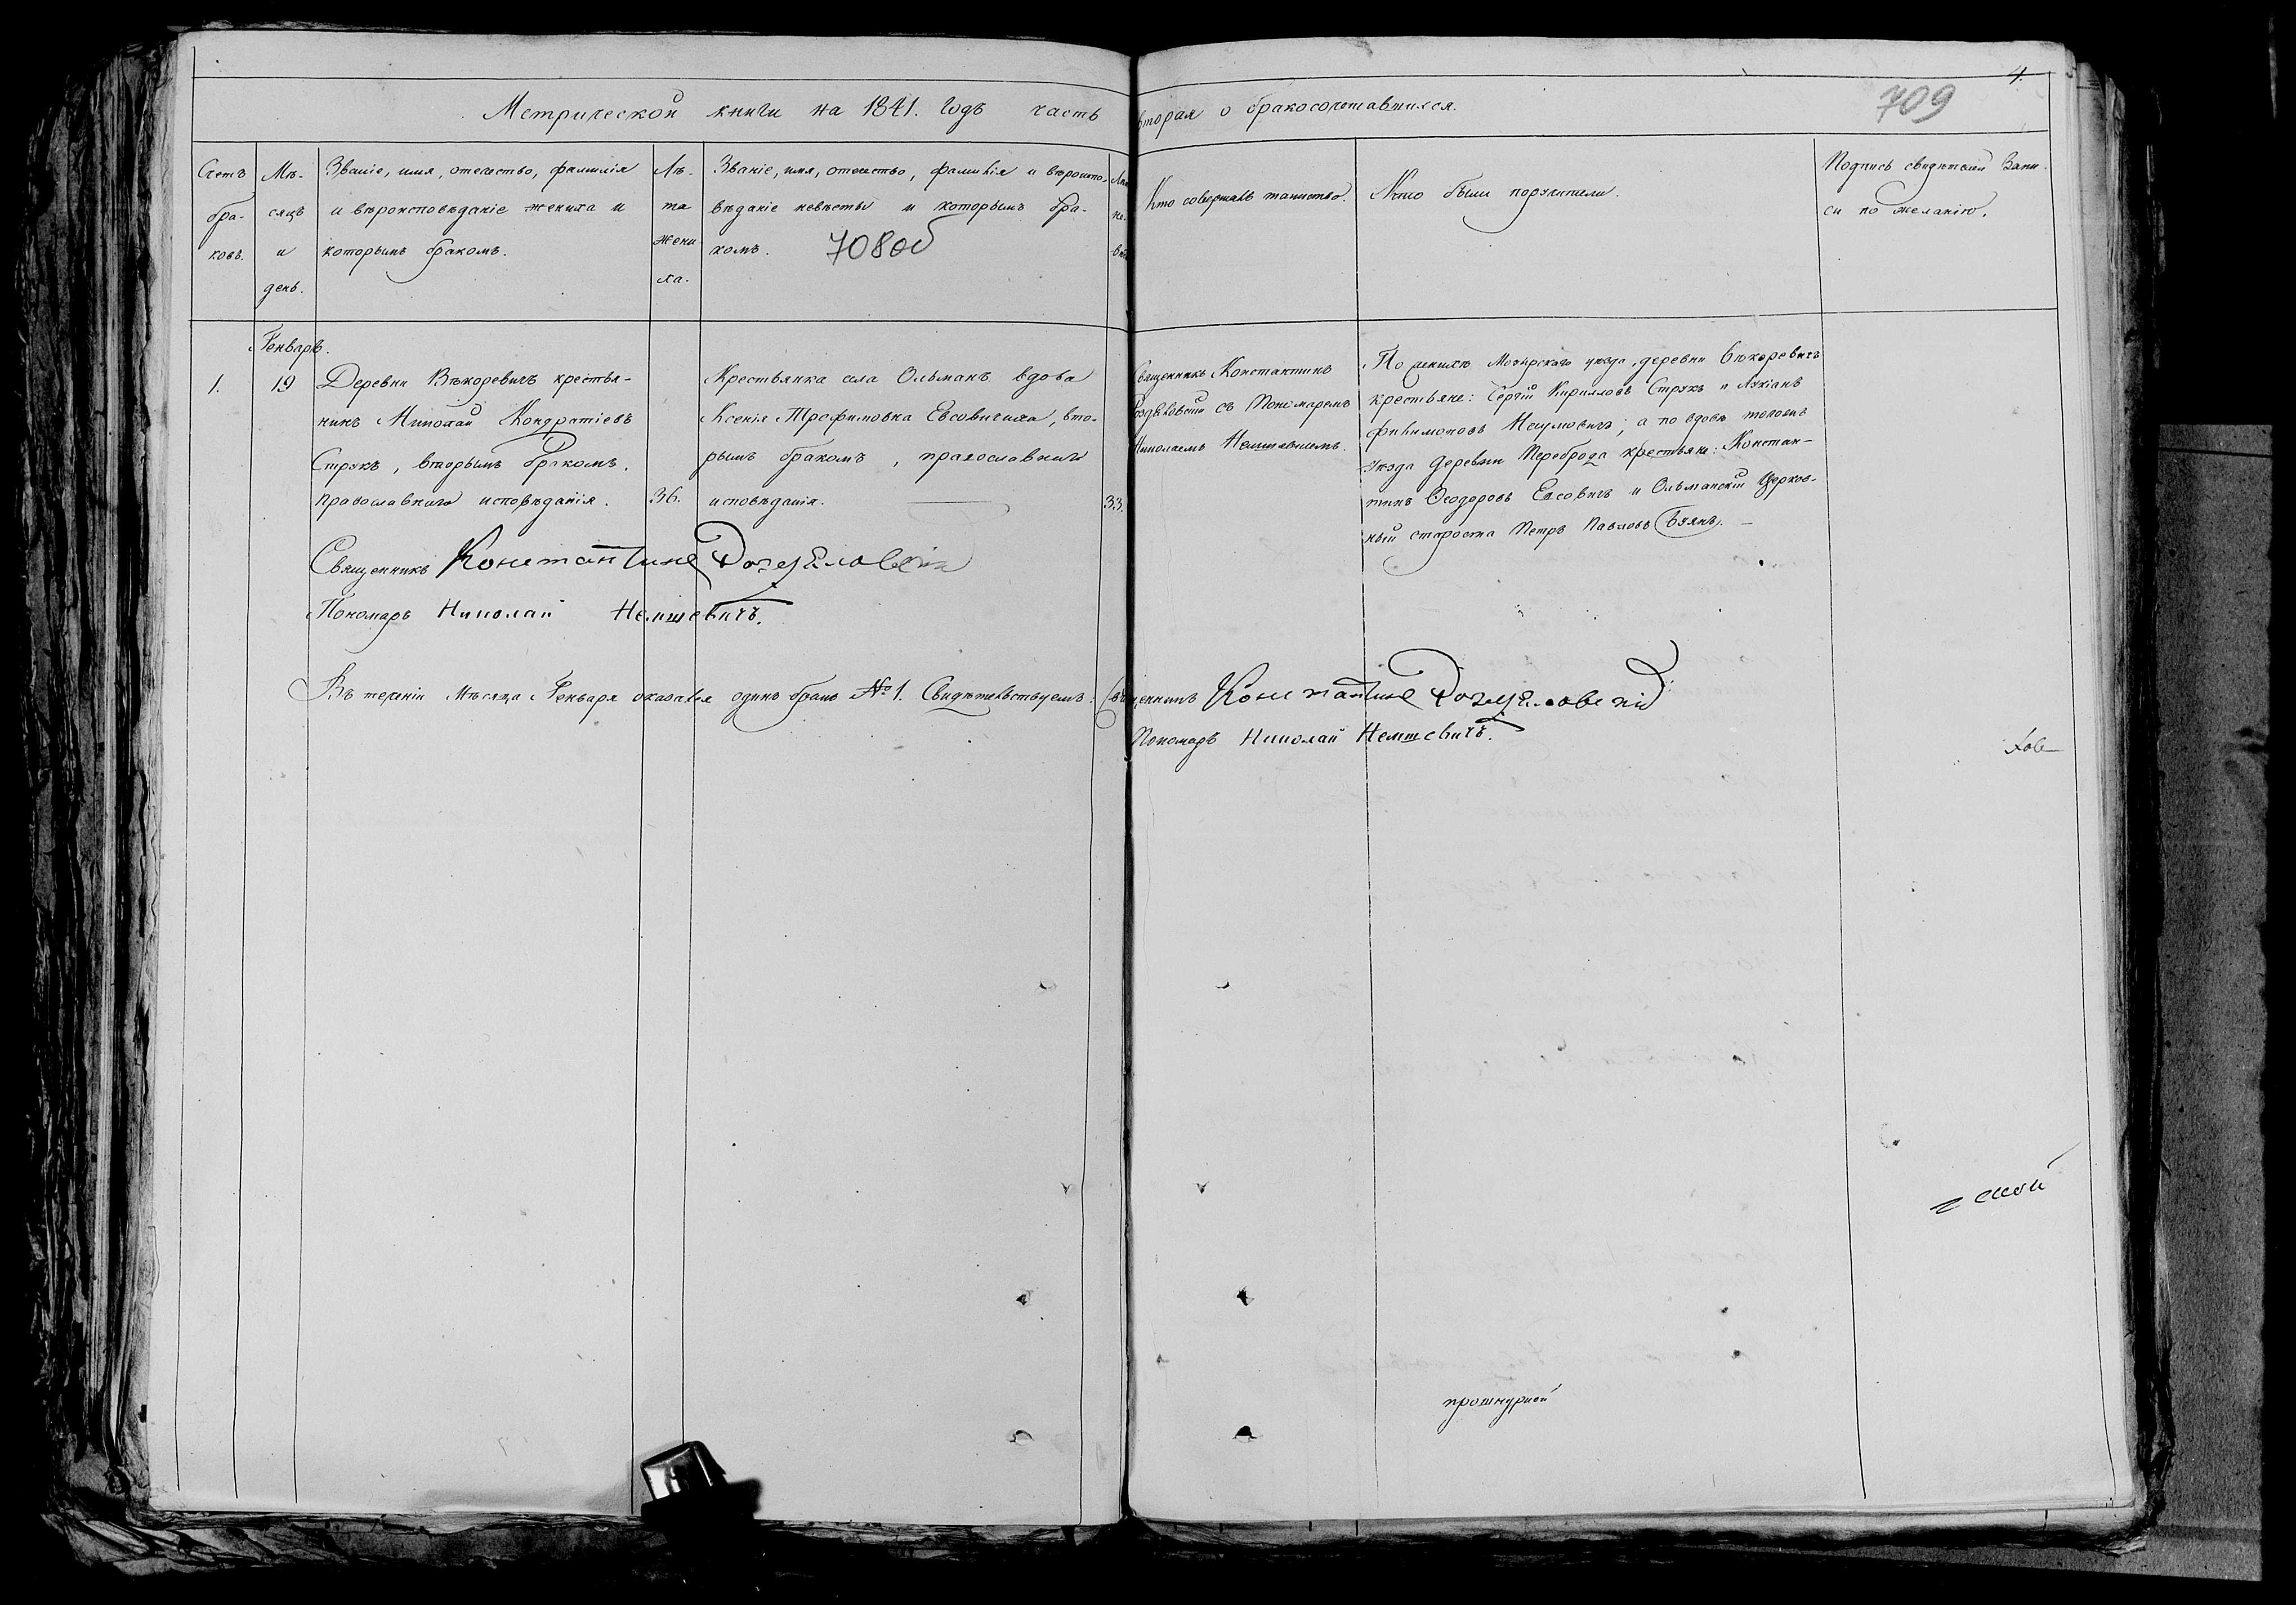 4.
Метрической книги на 1841. годъ часть вторая о бракосочетавшихся.
709
Счетъ бра- ковъ.
Мѣ- сяцъ и день.
Званіе, имя, отечество, фамилія
и вѣроисповѣданіе жениха и
которымъ бракомъ.
Лѣ- та жени- ха.
Званіе, имя, отечество, фамилія и вѣроиспо-
вѣданіе невѣсты и которымъ бра-
комъ.
708об
Кто совершалъ таинство.
Кто были поручители.
Подпись свидѣтелей запи-
си по желанію.
Генварь.
1.
19
Деревни Вѣкоревичъ крестья-
нинъ Миколай Кондратіевъ
Струкъ, вторымъ бракомъ,
православнаго исповѣданія.
36.
Крестьянка села Ольманъ вдова
Ксенія Трофимовна Евсовичиха, вто-
рымъ бракомъ, православнаго
исповѣданія.
33.
Священникъ Константинъ
съ Пономаремъ
Николаемъ Немшевичемъ.
По женихѣ Мозырскаго уѣзда, деревни Вѣкоревичъ
крестьяне: Сергій Кирилловъ Струкъ и Лукіанъ
Филимоновъ; а по вдовѣ тогожъ
уѣзда деревни Переброда крестьяне: Констан-
тинъ Ѳеодоровъ Евсовичъ и Ольманскій Церков-
ный староста Петръ Павловъ
Священникъ Константинъ
Пономарь Николай Немшевичъ.
Въ теченіи Мѣсяца Генваря оказался одинъ бракъ № 1. Свидѣтельствуемъ: Священникъ Константинъ
Пономарь Николай Немшевичъ.
прошнурной